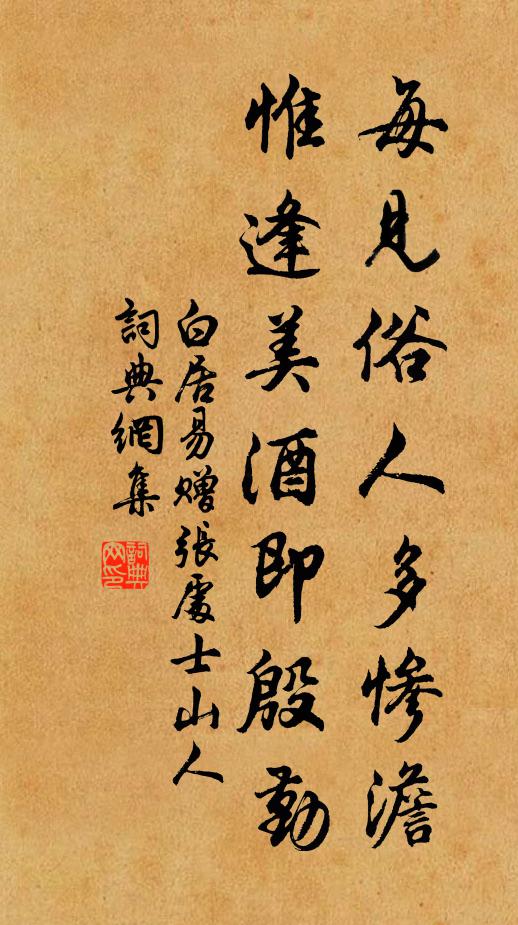 每見俗人多慘澹
惟逢美酒即殷勤
白居易贈張處士山人
詞典網集
詞典網印